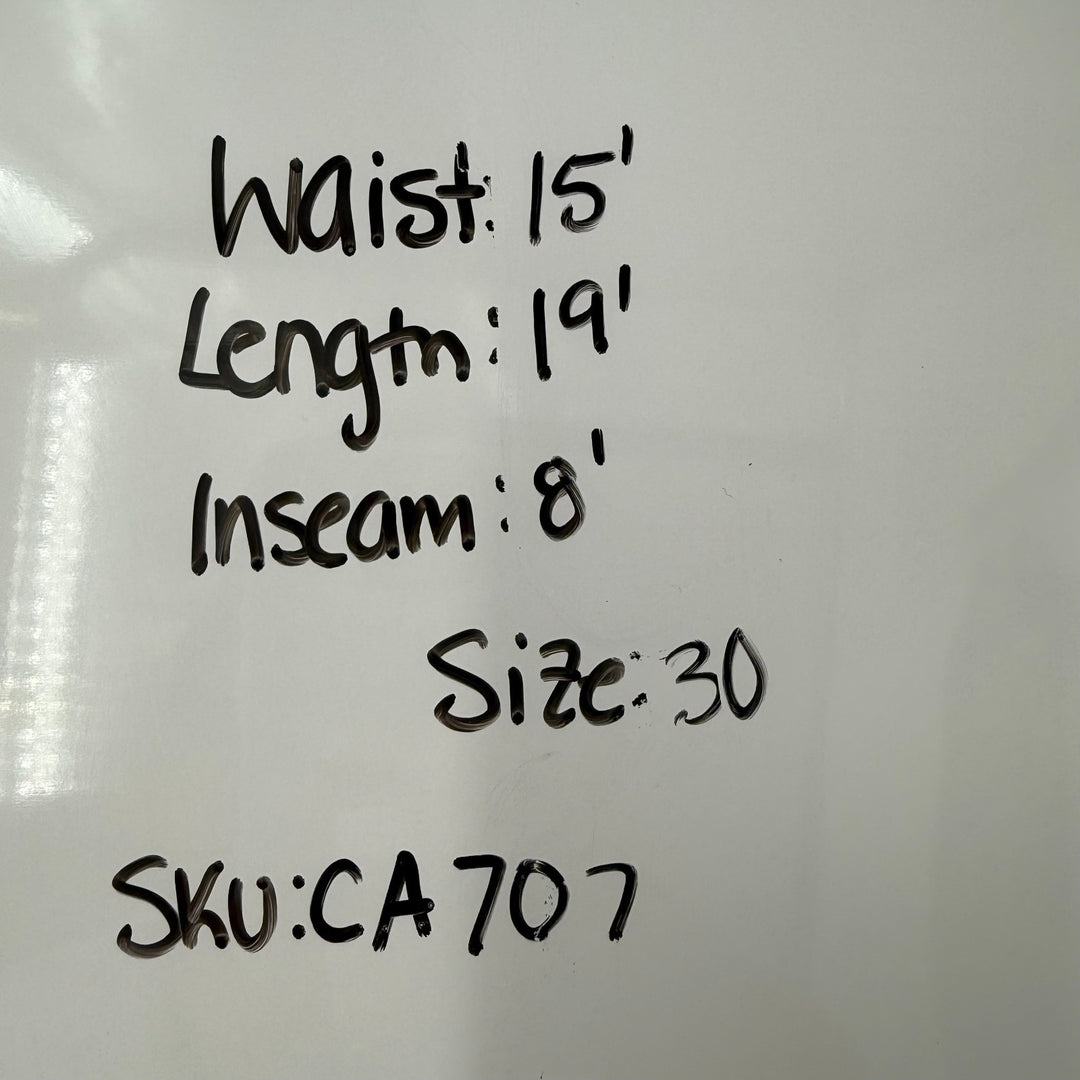 Waist: 15'
Length: 19'
Inseam: 8'
Size: 30
SKU: CA707